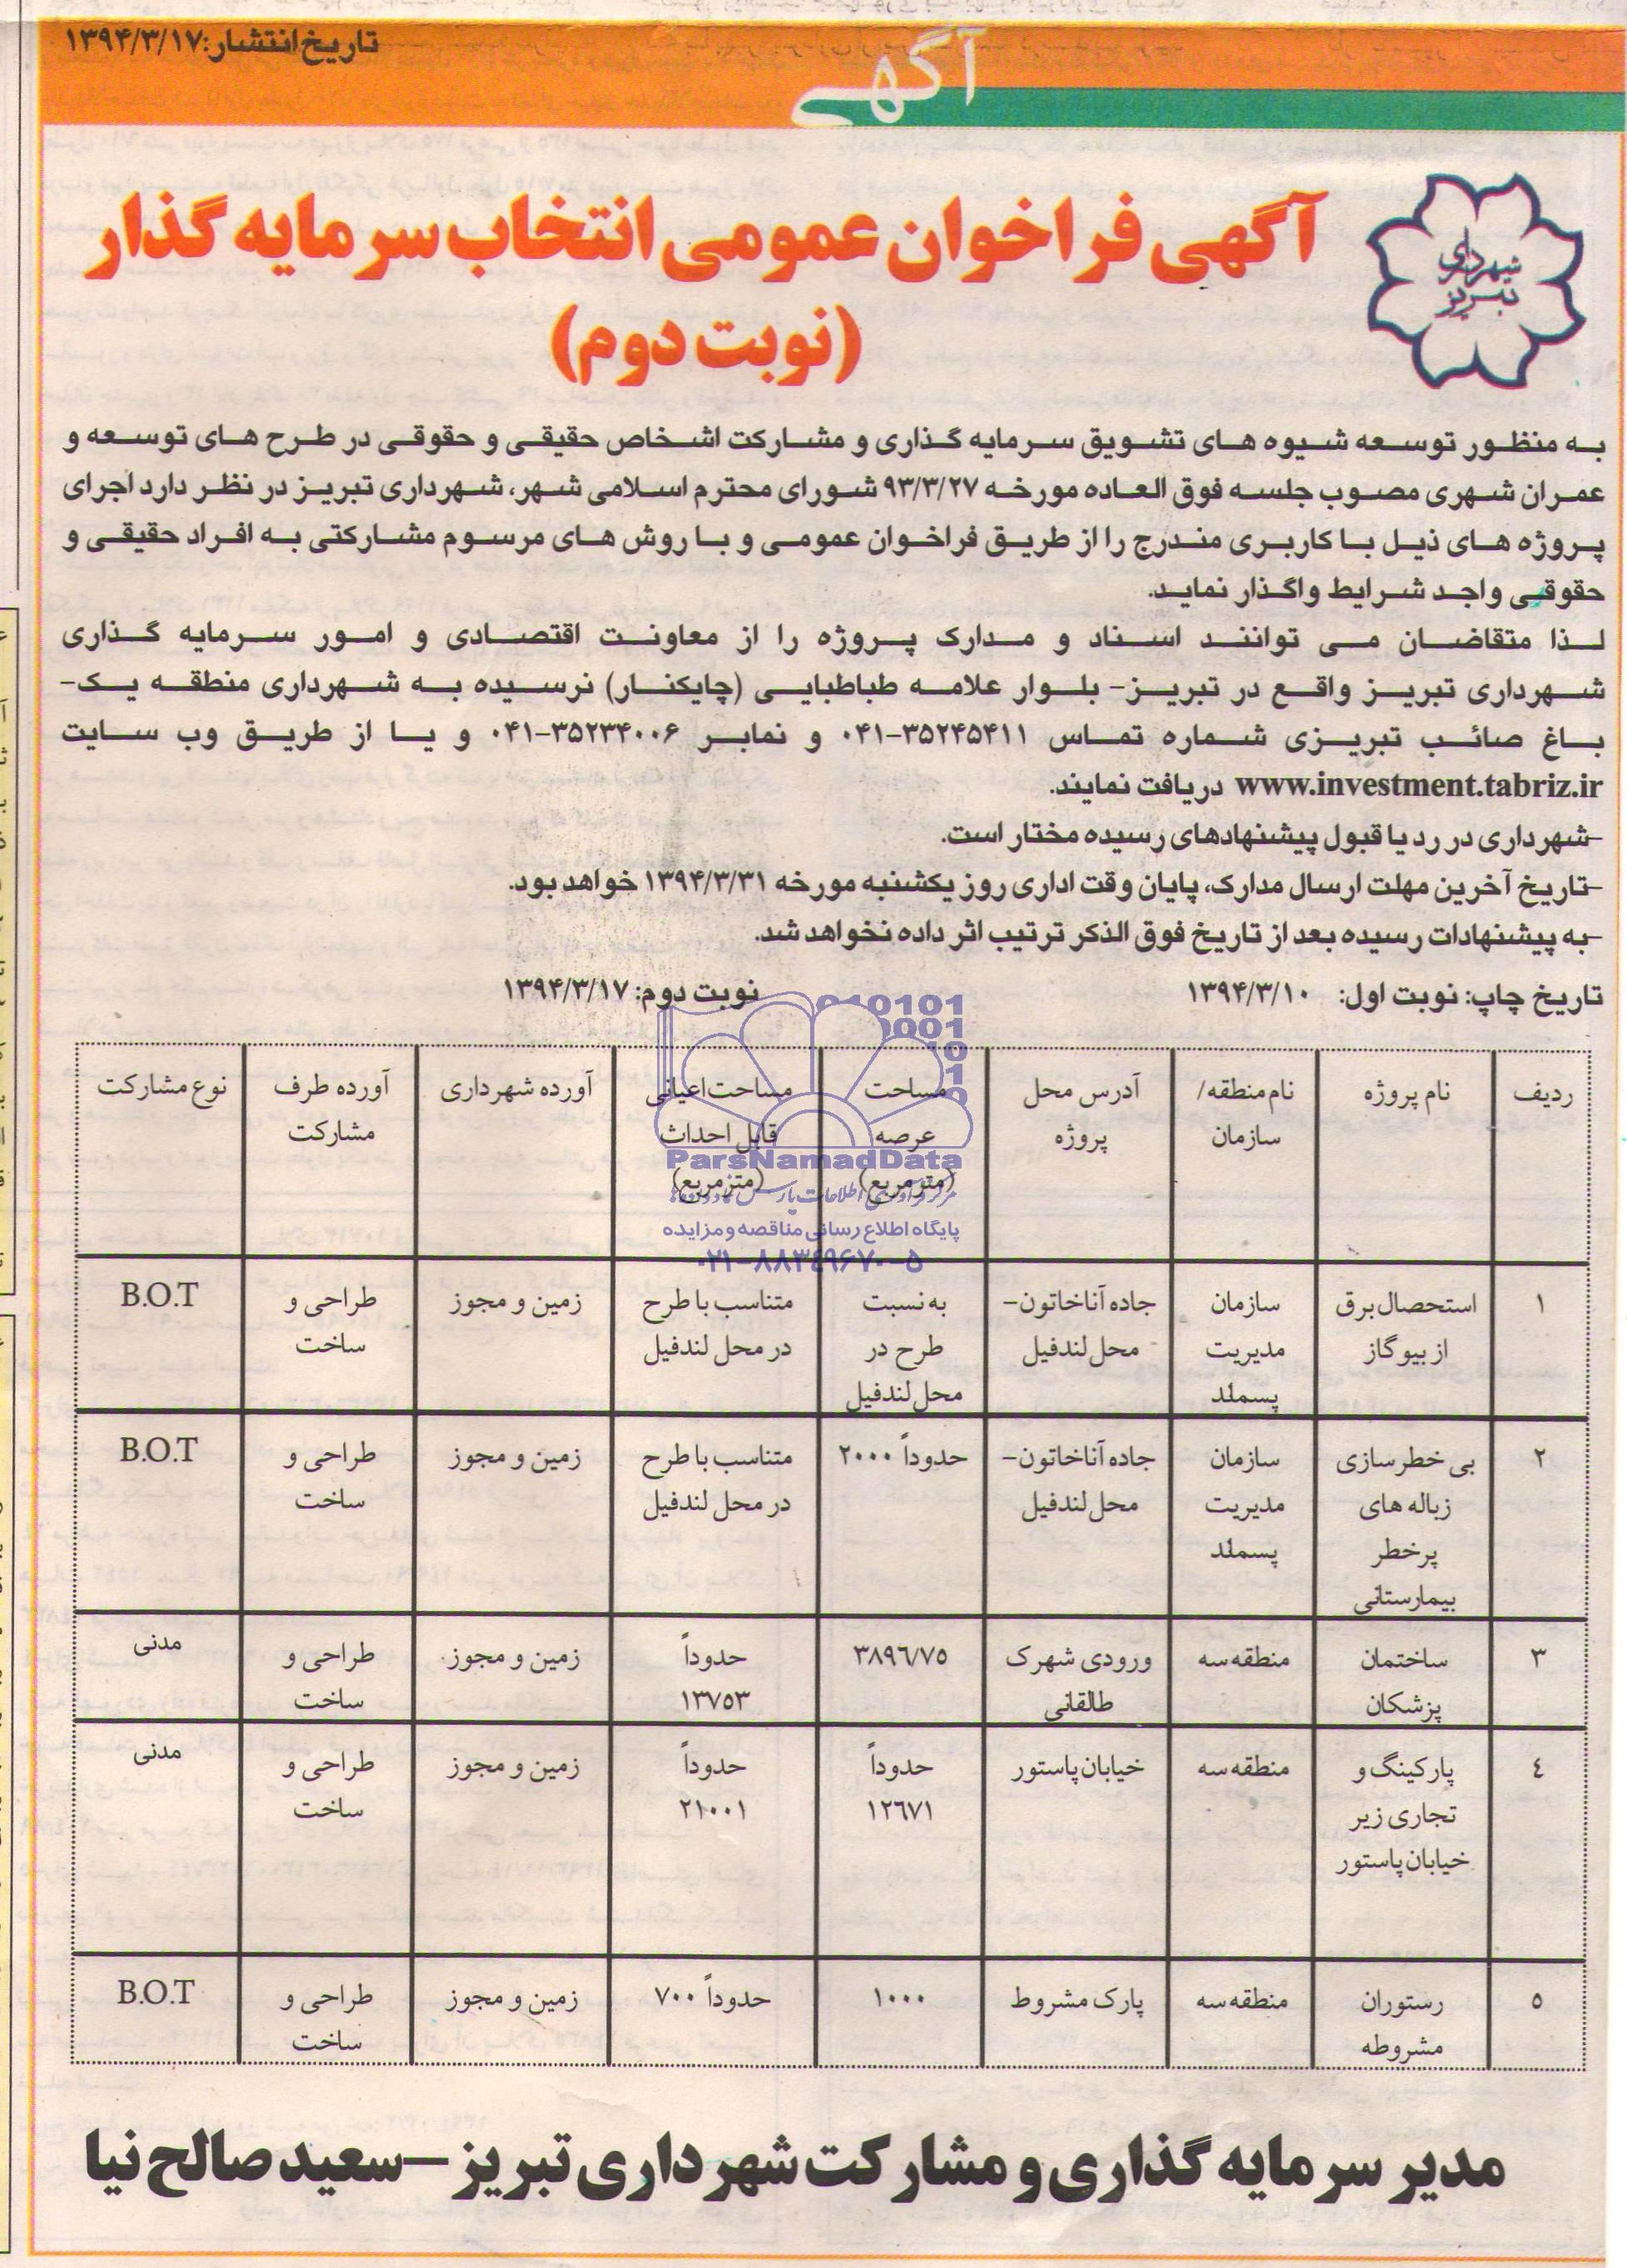 تاریخ انتشار: ۱۳۹۴/۳/۱۷
آگهی
شهرداری
تبریز
آگهی فراخوان عمومی انتخاب سرمایه گذار
(نوبت دوم)
به منظور توسعه شیوه های تشویق سرمایه گذاری و مشارکت اشخاص حقیقی و حقوقی در طرح های توسعه و
عمران شهری مصوب جلسه فوق العاده مورخه ۹۳/۳/۲۷ شورای محترم اسلامی شهر، شهرداری تبریز در نظر دارد اجرای
پروژه های ذیل با کاربری مندرج را از طریق فراخوان عمومی و با روش های مرسوم مشارکتی به افراد حقیقی و
حقوقی واجد شرایط واگذار نماید.
لذا متقاضان می توانند اسناد و مدارک پروژه را از معاونت اقتصادی و امور سرمایه گذاری
شهرداری تبریز واقع در تبریز- بلوار علامه طباطبایی (چایکنار) نرسیده به شهرداری منطقه یک-
باغ صائب تبریزی شماره تماس ۰۴۱-۳۵۲۴۵۴۱۱ و نمابر ۰۴۱-۳۵۲۳۴۰۰۶ و یا از طریق وب سایت
www.investment.tabriz.ir دریافت نمایند.
-شهرداری در رد یا قبول پیشنهادهای رسیده مختار است.
-تاریخ آخرین مهلت ارسال مدارک، پایان وقت اداری روز یکشنبه مورخه ۱۳۹۴/۳/۳۱ خواهد بود.
-به پیشنهادات رسیده بعد از تاریخ فوق الذکر ترتیب اثر داده نخواهد شد.
تاریخ چاپ: نوبت اول: ۱۳۹۴/۳/۱۰ نوبت دوم: ۱۳۹۴/۳/۱۷
ردیف نام پروژه نام منطقه/ آدرس محل مساحت مساحت اعیانی آورده شهرداری آورده طرف نوع مشارکت
سازمان پروژه عرصه قابل احداث مشارکت
(مترمربع) (مترمربع)
ParsNamadData
پایگاه اطلاع رسانی مناقصه و مزایده
۰۲۱-۸۸۳۴۹۶۷۰-۵
۱ استحصال برق سازمان جاده آناخاتون- به نسبت متناسب با طرح زمین و مجوز طراحی و B.O.T
از بیو گاز مدیریت محل لندفیل طرح در در محل لندفیل ساخت
پسماند محل لندفیل
۲ بی خطر سازی سازمان جاده آناخاتون- حدوداً ۲۰۰۰ متناسب با طرح زمین و مجوز طراحی و B.O.T
زباله های مدیریت محل لندفیل در محل لندفیل ساخت
پرخطر پسماند
بیمارستانی
۳ ساختمان منطقه سه ورودی شهرک ۳۸۹۶/۷۵ حدوداً زمین و مجوز طراحی و مدنی
پزشکان طالقانی ۱۳۷۵۳ ساخت
۴ پارکینگ و منطقه سه خیابان پاستور حدوداً حدوداً زمین و مجوز طراحی و مدنی
تجاری زیر ۱۲۶۷۱ ۲۱۰۰۱ ساخت
خیابان پاستور
۵ رستوران منطقه سه پارک مشروط ۱۰۰۰ حدوداً ۷۰۰ زمین و مجوز طراحی و B.O.T
مشروطه ساخت
مدیر سرمایه گذاری و مشارکت شهرداری تبریز - سعید صالح نیا